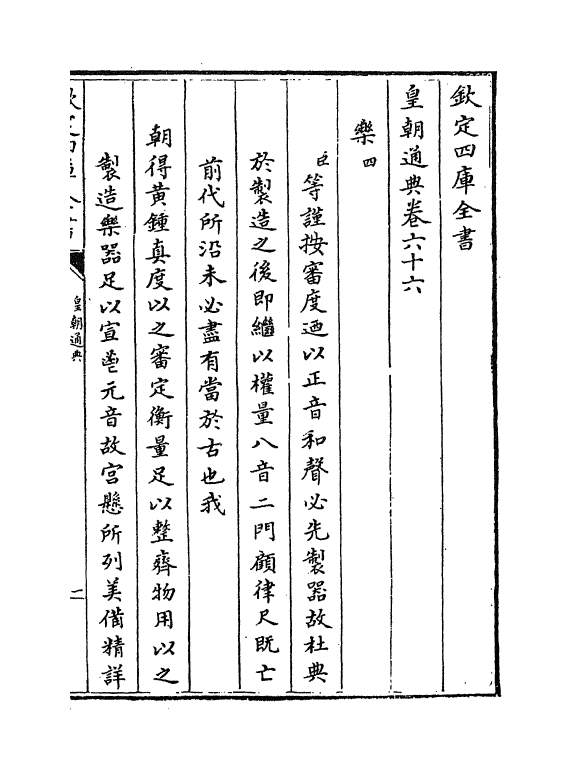 欽定四庫全書
皇朝通典卷六十六
樂四
臣等謹按審度迺以正音和聲必先製器故杜典
於製造之後即繼以權量八音二門顧律尺既亡
前代所沿未必盡有當於古也我
朝得黄鍾真度以之審定衡量足以整齊物用以之
製造樂器足以宣邕元音故宫懸所列美偹精詳
皇朝通典